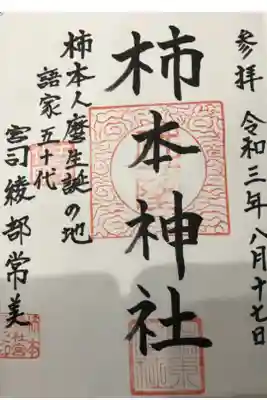 参拝 令和三年八月十七日
柿本神社
柿本人麿生誕の地
語家五十代
宮司綾部常美